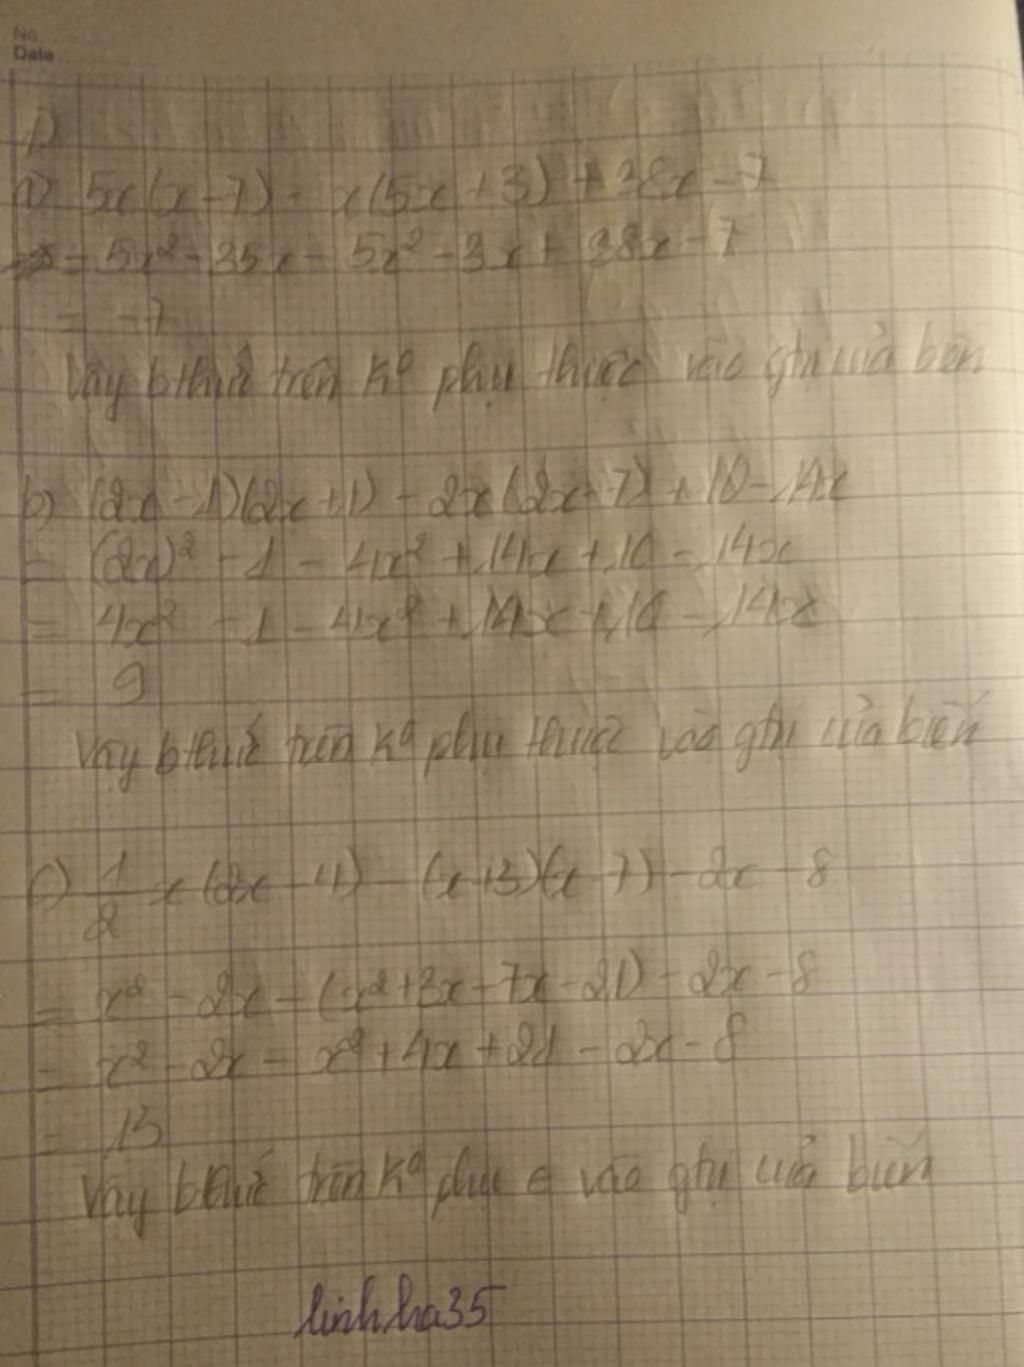 No.
Date
1)
a) 5x(x-7) - x(5x+3) + 38x - 7
= 5x² - 35x - 5x² - 3x + 38x - 7
= -7
Vậy bthức trên k⁰ phụ thuộc vào gtrị của biến
b) (2x - 1)(2x+1) - 2x(2x-7) + 10 - 14x
= (2x)² - 1 - 4x² + 14x + 10 - 14x
= 4x² - 1 - 4x² + 14x + 10 - 14x
= 9
Vậy bthức trên k⁰ phụ thuộc vào gtrị của biến
c) 1/2 x (2x - 4) - (x+3)(x-7) - 2x - 8
= x² - 2x - (x² + 3x - 7x - 21) - 2x - 8
= x² - 2x - x² + 4x + 21 - 2x - 8
= 13
Vậy bthức trên k⁰ phụ € vào gtrị của biến
linhha35